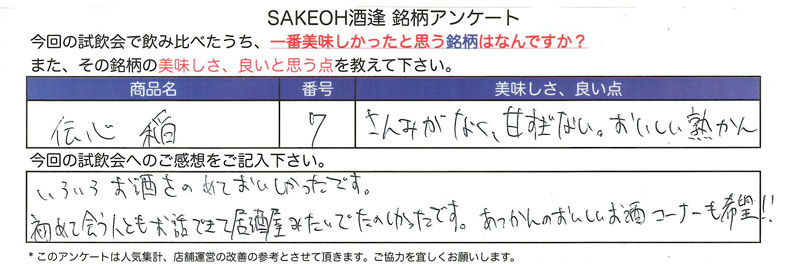 SAKEOH酒逢 銘柄アンケート
今回の試飲会で飲み比べたうち、一番美味しかったと思う銘柄はなんですか？
また、その銘柄の美味しさ、良いと思う点を教えて下さい。
商品名 番号 美味しさ、良い点
伝心 稲 7 さんみがなく、甘すぎない。おいしい熟かん
今回の試飲会へのご感想をご記入下さい。
いろいろお酒をのめておいしかったです。
初めて会う人ともお話できて居酒屋みたいでたのしかったです。あつかんのおいしいお酒コーナーも希望!!
*このアンケートは人気集計、店舗運営の改善の参考とさせて頂きます。ご協力を宜しくお願いします。